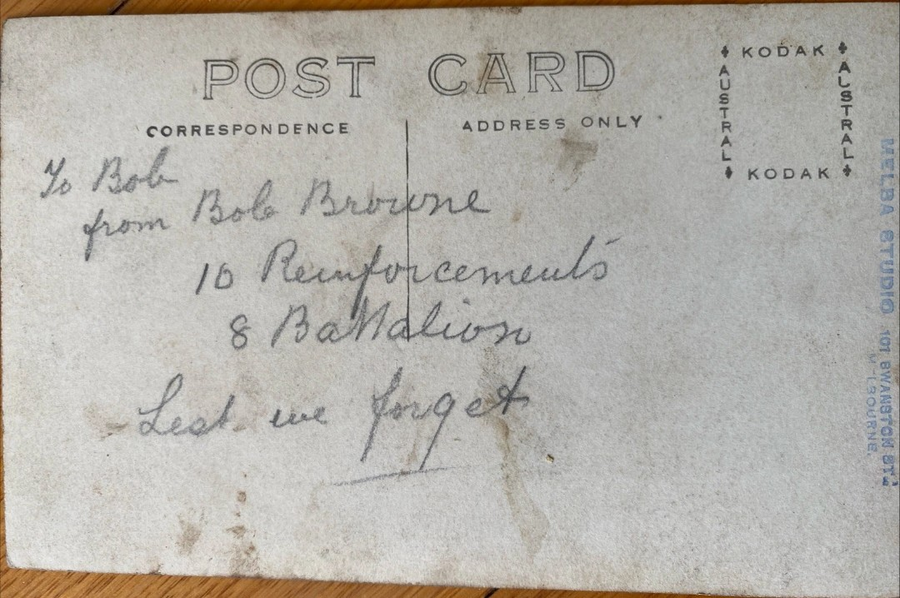 POST CARD
CORRESPONDENCE
ADDRESS ONLY
KODAK
AUSTRAL
AUSTRAL
KODAK
To Bob
from Bob Browne
10 Reinforcements
8 Battalion
Lest we forget
MELBA STUDIO 101 SWANSTON ST.
MELBOURNE.